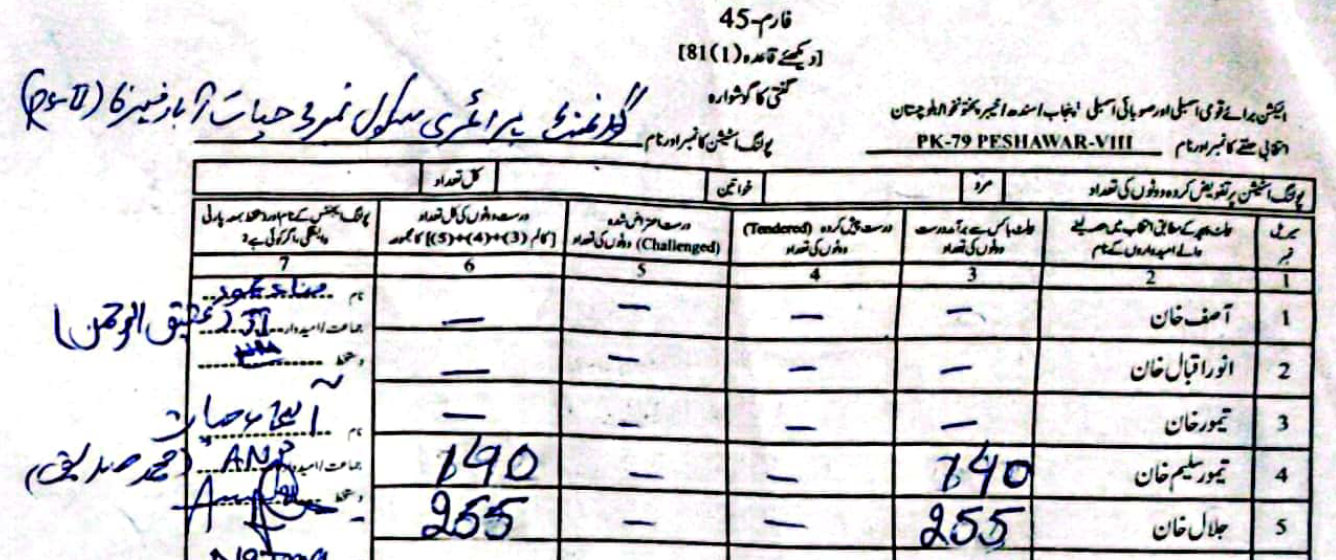 فارم-45
[دیکھئے قاعدہ (1)81]
گنتی کا گوشوارہ
الیکشن برائے قومی اسمبلی اور صوبائی اسمبلی پنجاب/سندھ/خیبر پختونخوا/بلوچستان
انتخابی حلقے کا نمبر اور نام PK-79 PESHAWAR-VIII پولنگ اسٹیشن کا نمبر اور نام گورنمنٹ پرائمری سکول نمبر حیات آباد فیز 6 (PS-II)
پولنگ اسٹیشن پر تفویض کردہ ووٹوں کی تعداد مرد خواتین کل تعداد
سیریل نمبر بیلٹ پیپر کے مطابق انتخاب میں حصہ لینے والے امیدواروں کے نام بیلٹ باکس سے برآمد درست ووٹوں کی تعداد درست پیش کردہ (Tendered) ووٹوں کی تعداد درست اعتراض شدہ (Challenged) ووٹوں کی تعداد درست ووٹوں کی کل تعداد [کالم (3)+(4)+(5)] کا مجموعہ پولنگ ایجنٹس کے نام اور دستخط بمعہ پارٹی وابستگی، اگر کوئی ہے؟
1 2 3 4 5 6 7
1 آصف خان — — — — نام
جماعت/امیدوار JI (عتیق الرحمن)
2 انور اقبال خان — — — — دستخط
3 تیمور خان — — — — نام
4 تیمور سلیم خان 140 — — 140 جماعت/امیدوار ANP (محمد صدیق)
5 جلال خان 255 — — 255 دستخط